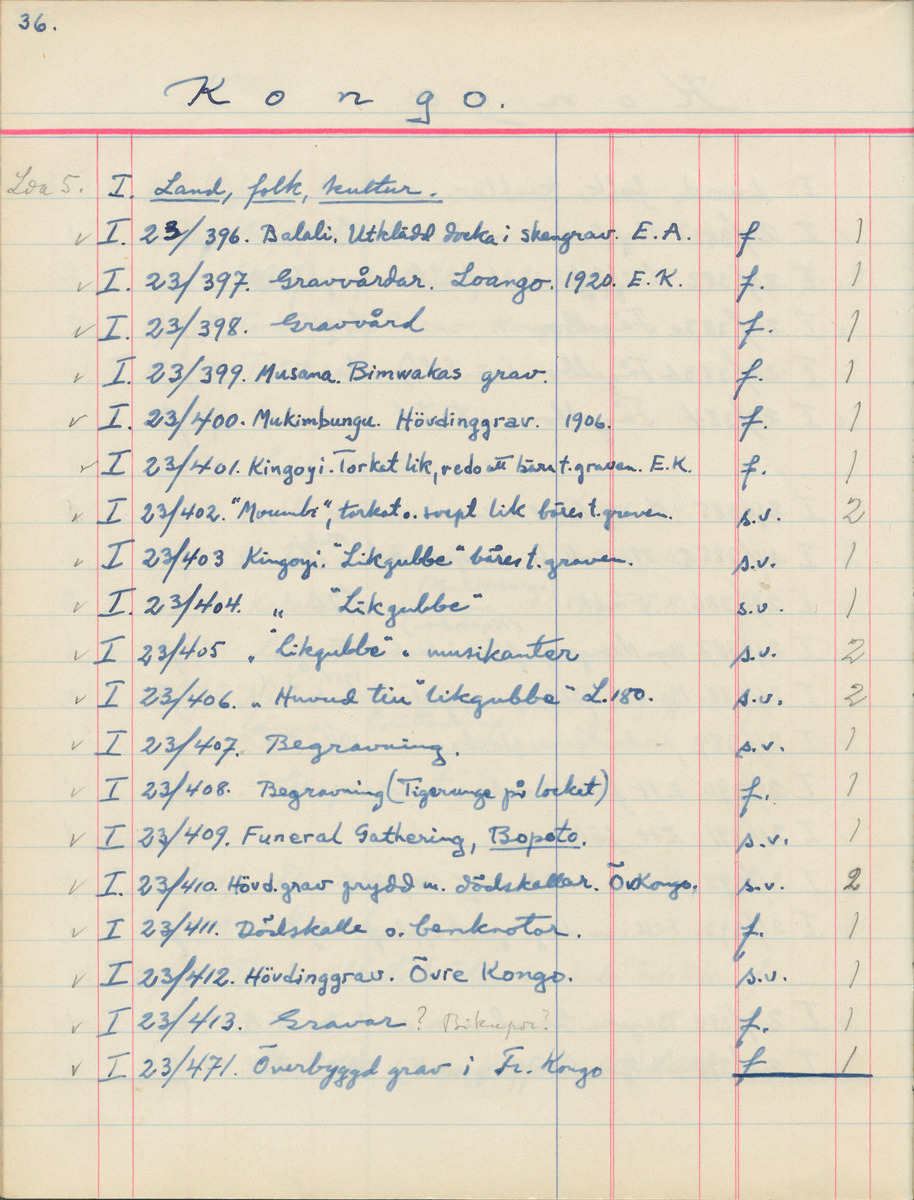 36.
Kongo.
Låda 5. I. Land, folk, kultur.
✓ I. 23/396. Balali. Utklädd docka i skengrav. E.A. f. 1
✓ I. 23/397. Gravvårdar. Loango. 1920. E.K. f. 1
✓ I. 23/398. Gravvård f. 1
✓ I. 23/399. Musana. Bimwakas grav. f. 1
✓ I. 23/400. Mukimbungu. Hövdinggrav. 1906. f. 1
✓ I 23/401. Kingoyi. Torkat lik, redo att bäras t. graven. E.K. f. 1
✓ I 23/402. "Moumbi", torkat o. svept lik bäres t. graven. s.v. 2
✓ I 23/403 Kingoyi. "Likgubbe" bäres t. graven. s.v. 1
✓ I. 23/404. „ "Likgubbe" s.v. 1
✓ I 23/405 „ "Likgubbe" o musikanter s.v. 2
✓ I 23/406. „ Huvud till "likgubbe" L.180. s.v. 2
✓ I 23/407. Begravning. s.v. 1
✓ I 23/408. Begravning (Tigerunge på locket) f. 1
✓ I 23/409. Funeral Gathering, Bopoto. s.v. 1
✓ I. 23/410. Hövd.grav prydd m. dödskallar. Öv Kongo. s.v. 2
✓ I 23/411. Dödskalle o. benknotor. f. 1
✓ I 23/412. Hövdinggrav. Övre Kongo. s.v. 1
✓ I 23/413. Gravar? Bikupor? f. 1
✓ I 23/471. Överbyggd grav i Fr. Kongo f 1